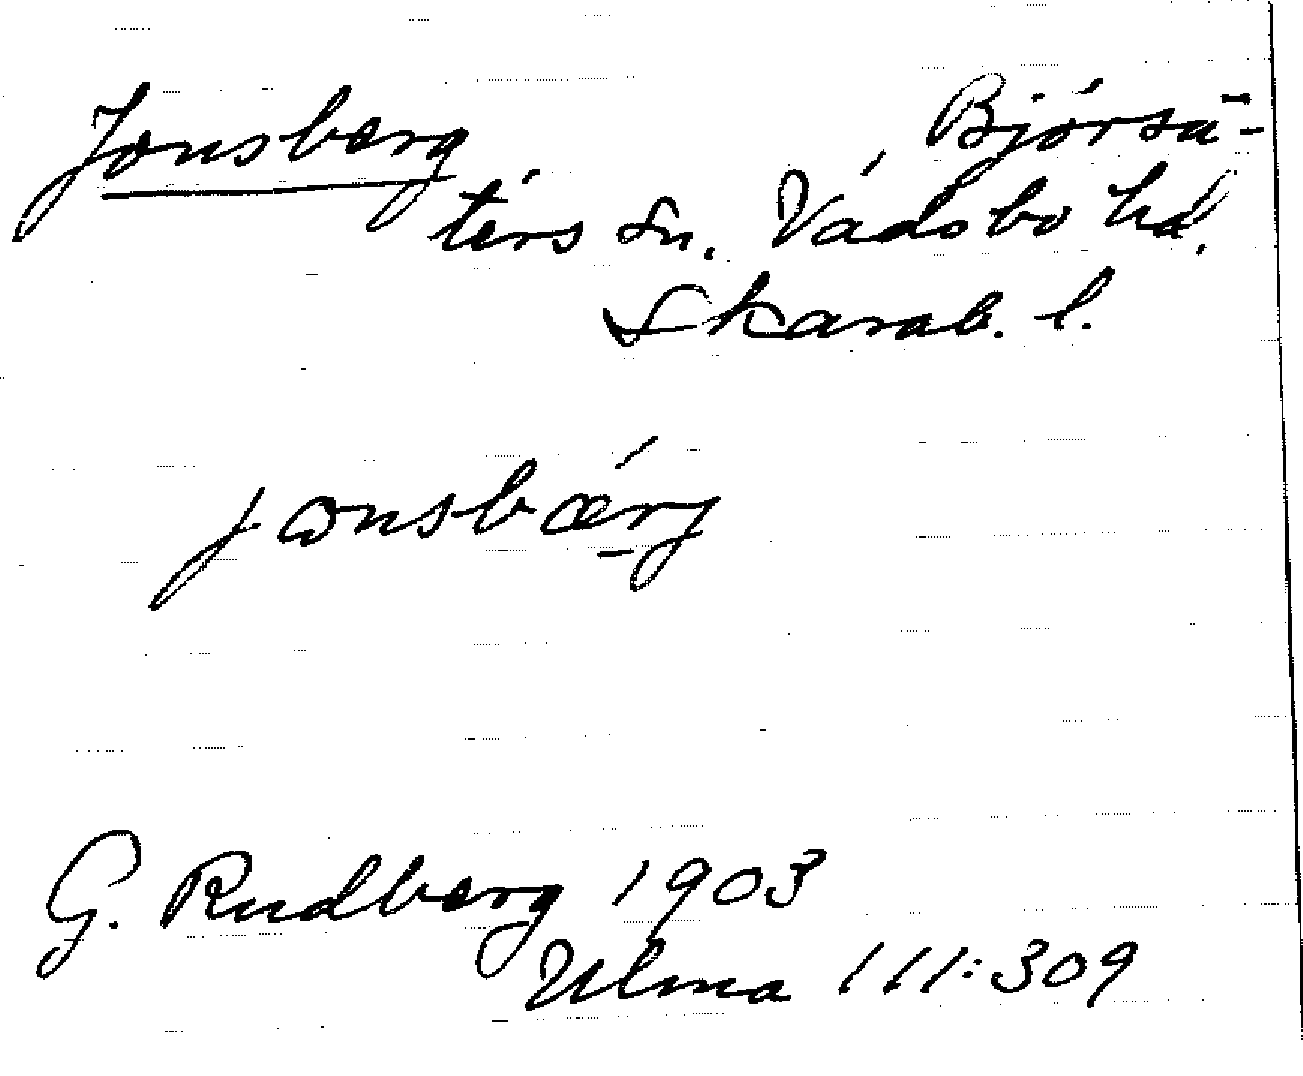 Jonsberg Björsä-
ters sn. Vadsbo hd.
Skarab. l.
jonsbærj
G. Rudberg 1903
Ulma 111:309